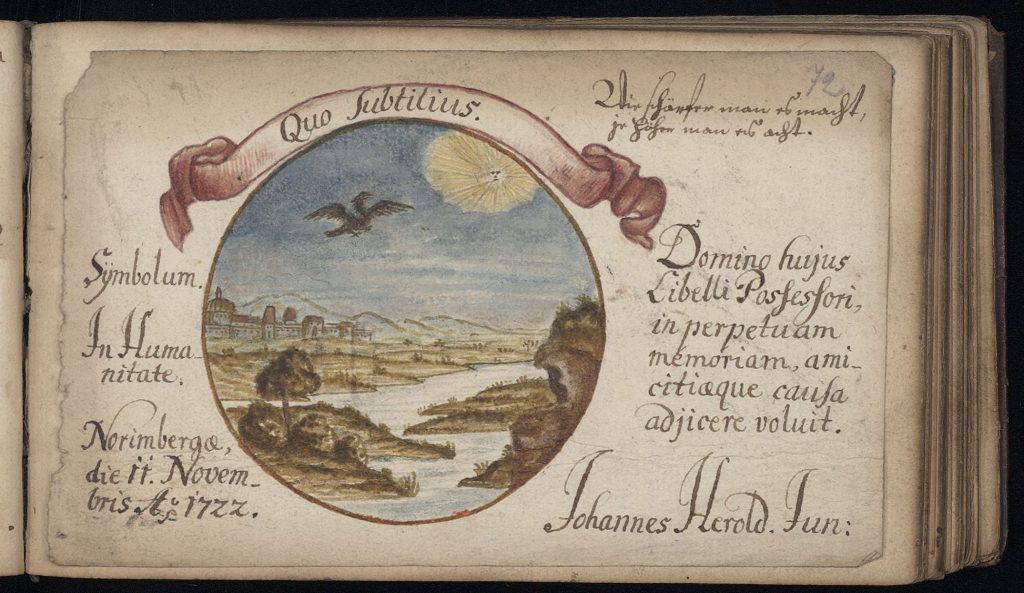 Quo Subtilius.
72
Wie schärffer man es macht,
je höher man es acht.
Sÿmbolum.
In Huma-
nitate.
Norimbergæ,
die 11. Novem-
bris Aº 1722.
Domino hujus
Libelli Possessori,
in perpetuam
memoriam, ami-
citiæque causa
adjicere voluit.
Johannes Herold. Jun: